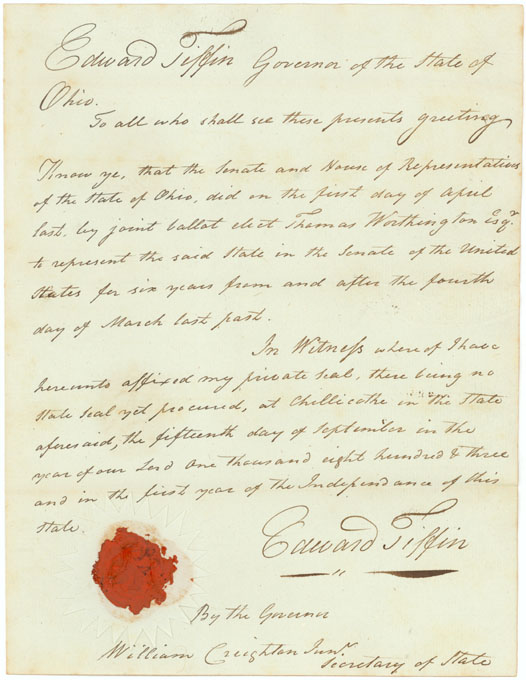 Edward Tiffin Governor of the State of
Ohio.
To all who shall see these presents greeting
Know ye, that the Senate and House of Representatives
of the State of Ohio, did on the first day of April
last, by joint ballot elect Thomas Worthington Esqr.
to represent the said State in the Senate of the United
States for six years from and after the fourth
day of March last past.
In Witness where of I have
hereunto affixed my private seal, there being no
State Seal yet procured, at Chillicothe in the State
aforesaid, the fifteenth day of September in the
year of our Lord One thousand eight hundred & three
and in the first year of the Independance of this
State.
Edward Tiffin
By the Governor
William Creighton Junr.
Secretary of State